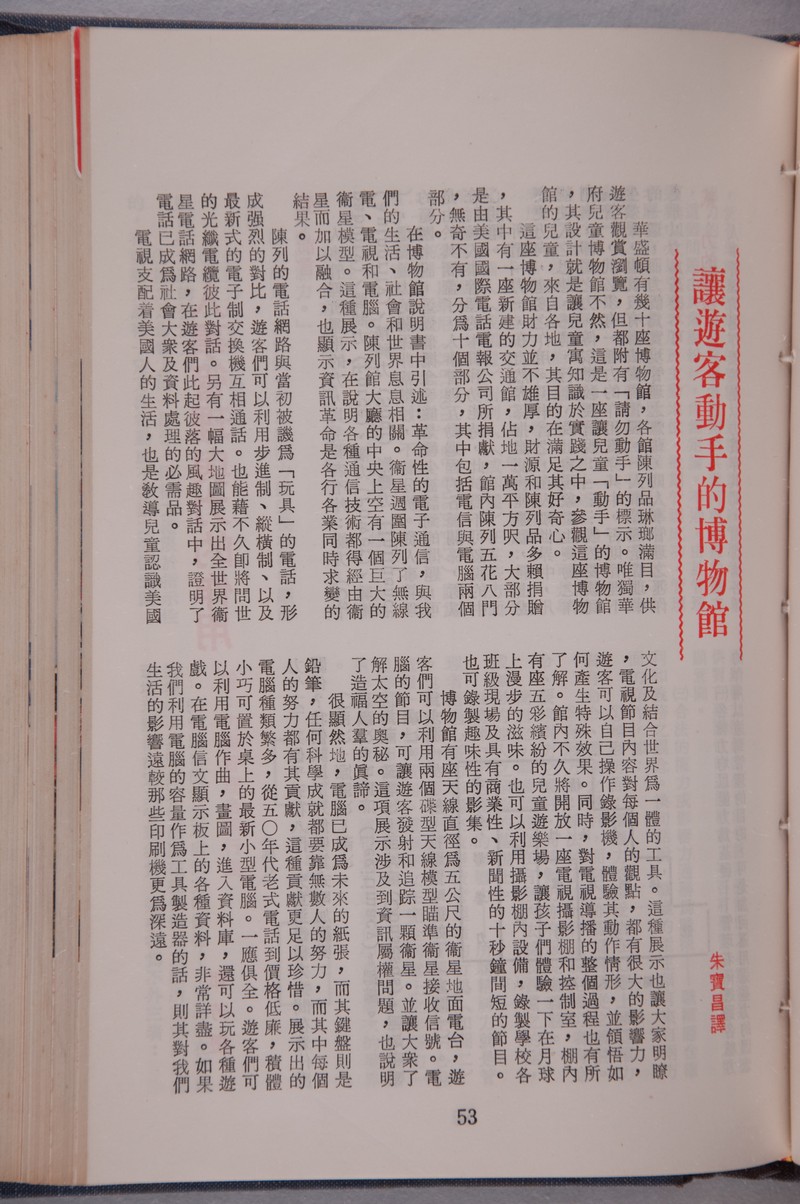 讓遊客動手的博物館
朱寶昌譯
華盛頓有幾十座博物館，各館陳列品琳瑯滿目，供
遊客觀賞瀏覽，但都附有「請勿動手」的標示。唯獨華
府兒童博物館不然，這是一座讓兒童「動手」的博物館
，其設計就是讓兒童寓知識於實踐之中，參觀這座博物
館的兒童，來自各地，其目的在滿足其好奇心。
這座博物館財力並不雄厚，財源和陳列品多賴捐贈
，其中有一座新建的交通館，佔地一萬平方呎，大部分
是由美國國際電話電報公司所捐獻，館內陳列五花八門
，無奇不有，分爲十個部分，其中包括電信與電腦兩個
部分。
在博物館說明書中引述：革命性的電子通信，與我
們的生活、社會和世界息息相關。衞星週圍陳列了無線
電、電視和電腦。陳列館大廳的中央上空有一個巨大的
衞星模型。這種展示，在說明各種通信技術都得經由衞
星而加以融合，也顯示資訊革命是各行各業同時求變的
結果。
陳列的電話網路與當初被譏爲「玩具」的電話，形
成强烈的對比，遊客們可以利用步進制、縱橫制、以及
最新式的電子制交換機互相通話。也能藉不久即將問世
的光纖電纜彼此對話。另有一幅大地圖展示出全世界衞
星電話網路，在遊客們此起彼落的風趣對話中，證明了
電話已成爲社會大衆及資料處理的必需品。
電視支配着美國人的生活，也是敎導兒童認識美國
文化及結合世界爲一體的工具。這種展示也讓大家明瞭
，電視節目內容對每個人的觀點，都有很大的影響力，
遊客可以自己操作錄影機，體驗其動作情形，並領悟如
何產生特殊效果。同時，對電視導播的整個過程也有所
了解。館內不久將開放一座電視攝影棚和控制室，棚內
有座五彩繽紛的兒童遊樂場，讓孩子們體驗一下在月球
上漫步的滋味。也可以利用攝影棚內設備，錄製學校各
班級現場及具有商業性、新聞性的十秒鐘間短的節目。
也可錄製趣味性的影集。
博物館有座天線直徑爲五公尺的衞星地面電台，遊
客們可以利用兩個碟型天線模型瞄準衞星接收信號。電
腦的節目，可讓遊客發射和追踪一顆衞星。並讓大衆了
解太空的奧秘。這項展示涉及到資訊屬權問題，也說明
了造福人羣的眞諦。
很顯然地，電腦已成爲未來的紙張，而其鍵盤則是
鉛筆，任何科學成就都要靠無數人的努力，而其中每個
人的努力都有其貢獻，這種貢獻更足以珍惜。展示出的
電腦種類繁多，從五〇年代老式電話到價格低廉，積體
小巧可置於桌上的最新小型電腦。一應俱全。遊客們可
以利用電腦作曲，畫圖，進入資料庫，還可以玩各種遊
戲。在電腦信文顯示板上的各種資料，非常詳盡。如果
我們利用電腦的容量作爲工具製造器的話，則其對我們
生活的影響遠較那些印刷機更爲深遠。
53